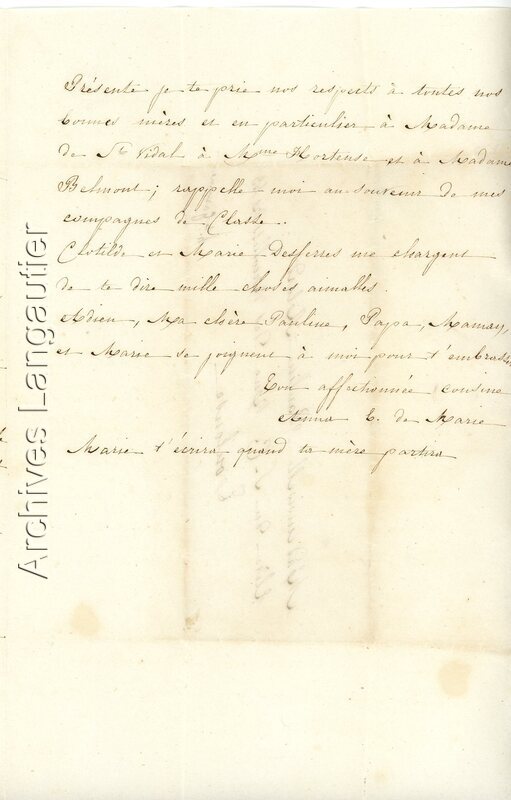 Présente je te prie nos respects à toutes nos
bonnes mères et en particulier à Madame
de St Vidal à Mme Hortense et à Madame
Belmont; rappelle-moi au souvenir de mes
compagnes de Classe.
Clotilde et Marie Desferres me chargent
de te dire mille choses aimables.
Adieu, Ma chère Pauline, Papa, Maman,
et Marie se joignent à moi pour t'embrasser
Ton affectionnée cousine
Anna C. de Marie
Marie t'écrira quand ta mère partira
Archives Langautier